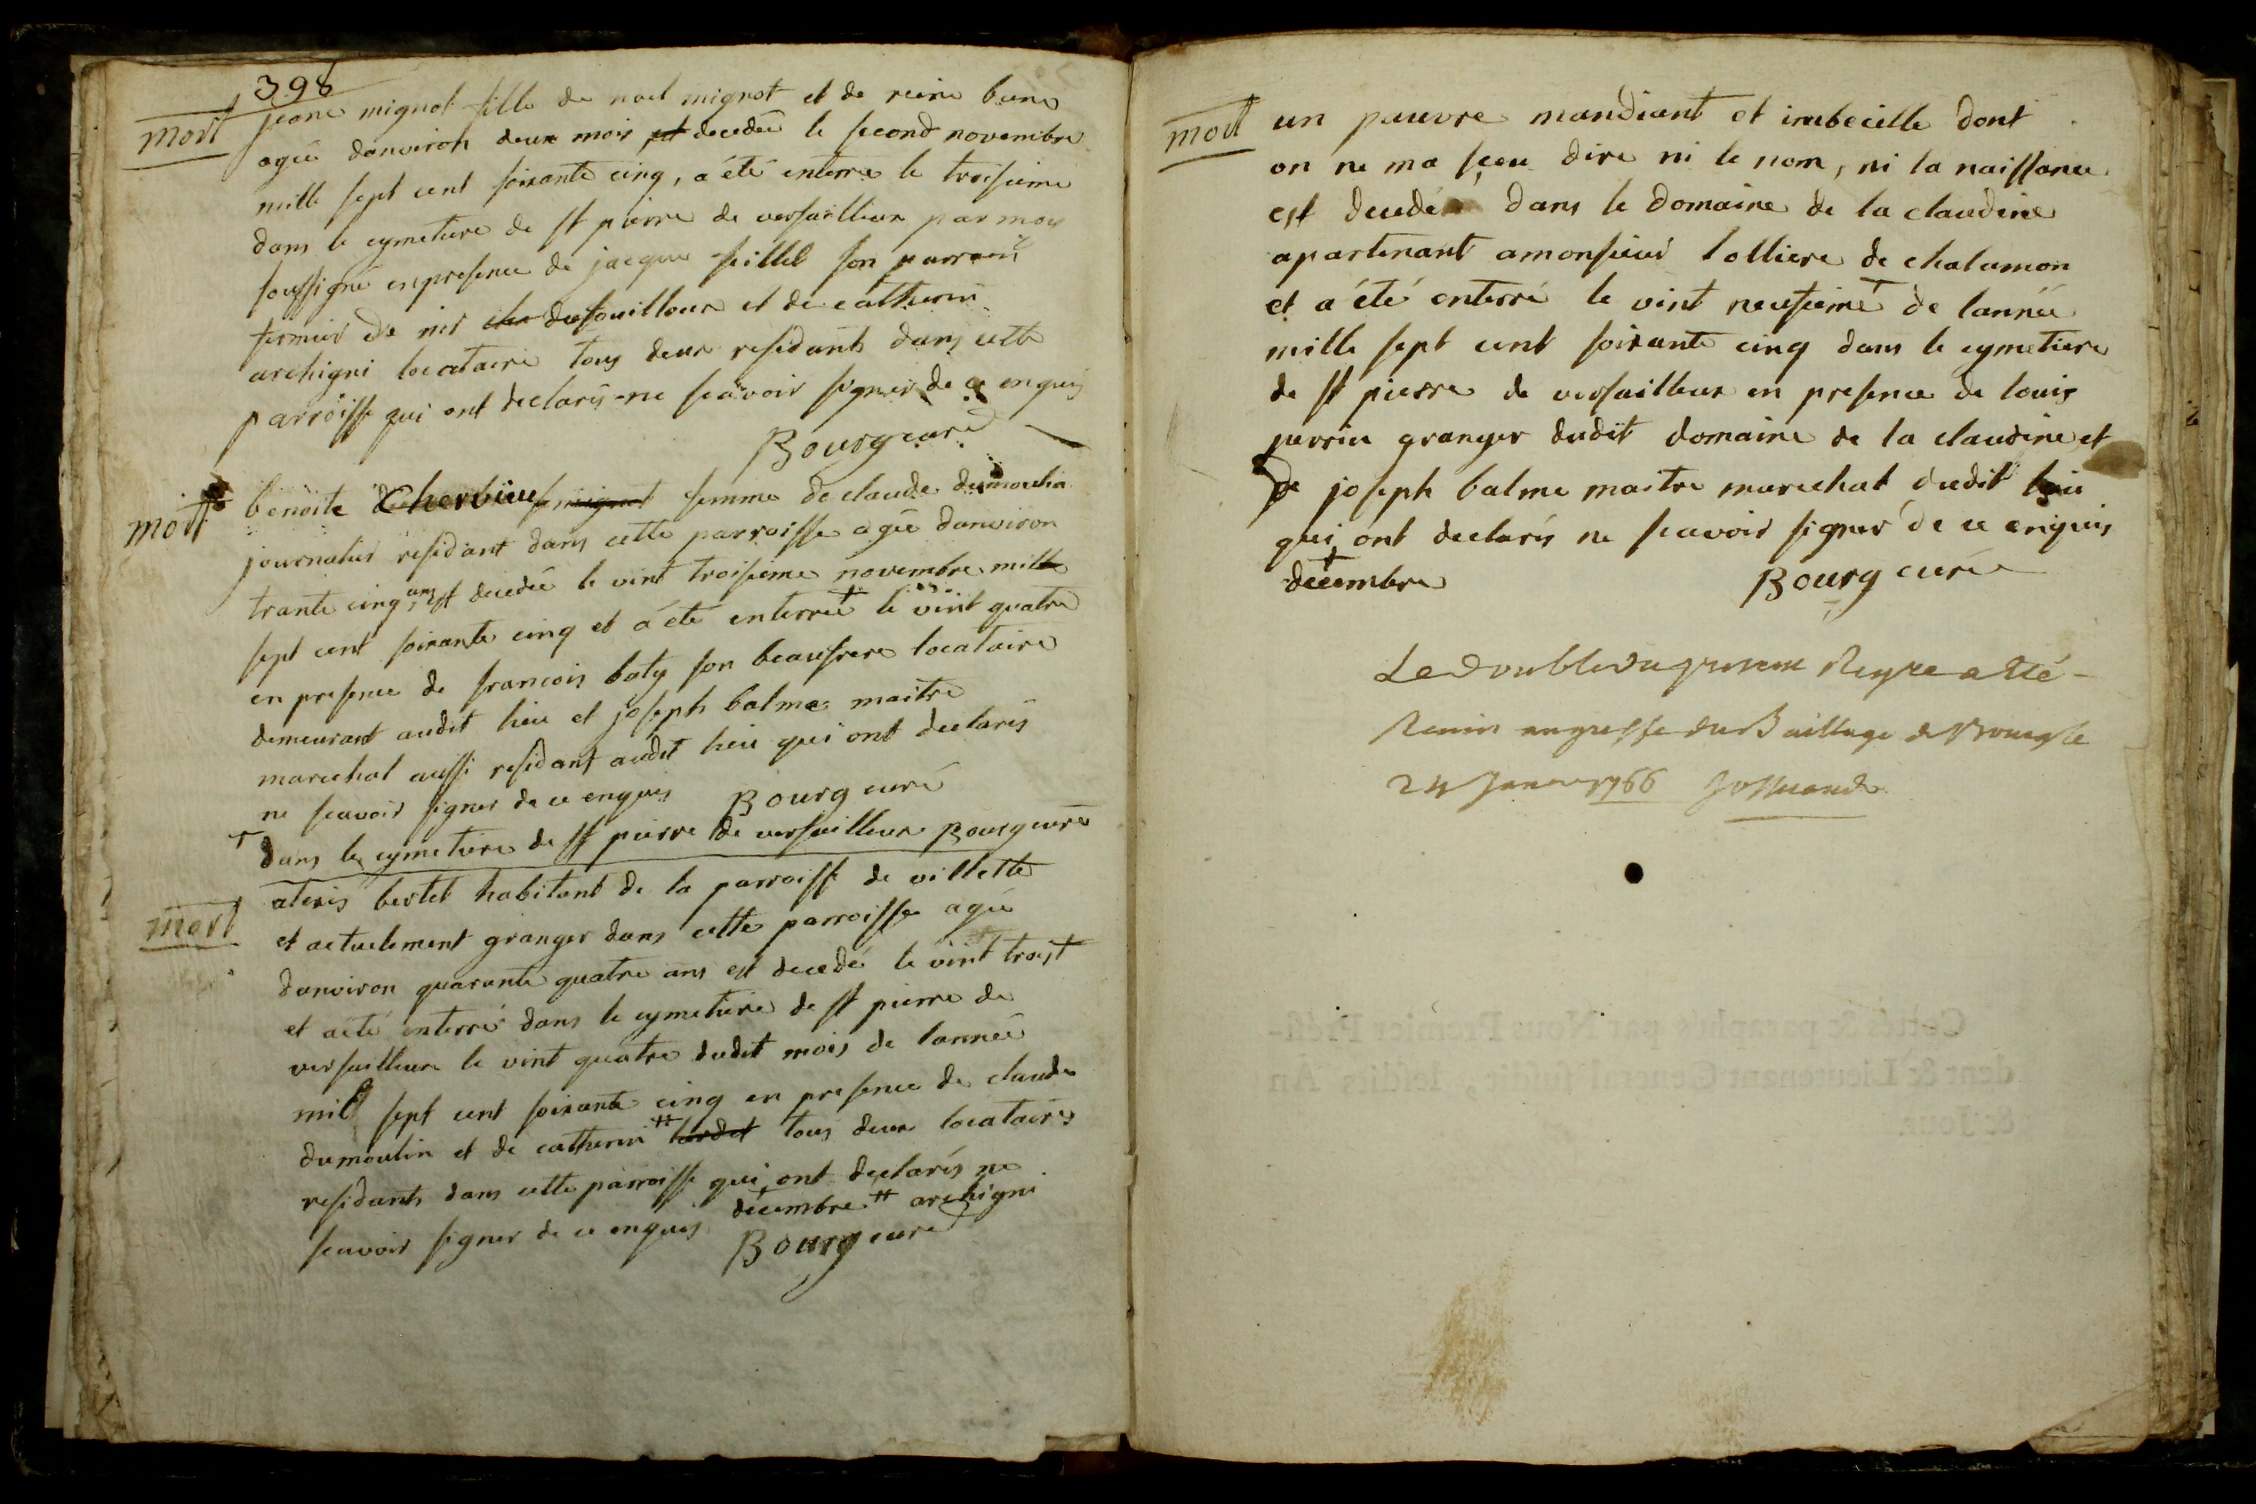 398
mort
jeane mignot fille de noel mignot et de reine
agée danviron deux mois est decedée le second novembre
mille sept cent soixante cinq, a été enterré le troisieme
dans le cymetiere de st pierre de versailleux par moy
soussigné en presence de jacque feillet son parrain
fermier de dufouilloux et de catherin
archigni locataire tous deux residants dans cette
parroisse qui ont declarés ne scavoir signer de ce enquis
Bourg curé
mort
benoite Cherbieu femme de claude dumoulin
journalier residant dans cette parroisse agée danviron
trante cinq ans est decedée le vint troisieme novembre mille
sept cent soixante cinq et a été enterrée + le vint quatre
en presence de francois baty son beaufrere locataire
demeurant audit lieu et joseph balme maitre
marechal aussi residant audit lieu qui ont declarés
ne scavoir signer de ce enquis Bourg curé
+ dans le cymetiere de st pierre de versailleux Bourg curé
mort
alexis bertet habitant de la parroisse de villette
et actuelement granger dans cette parroisse agé
danviron quarante quatre ans est decedé le vint trois +
et a été enterré dans le cymetiere de st pierre de
versailleux le vint quatre dudit mois de lannée
mil sept cent soixante cinq en presence de claude
dumoulin et de catherin ++ tous deux locataires
residants dans cette parroisse qui ont declarés ne
scavoir signer de ce enquis + décembre ++ archigni
Bourg curé
mort
un pauvre mandiant et imbecille dont
on ne ma sceu dire ni le nom, ni la naissance
est decedé dans le domaine de la claudine
apartenant a monsieur lolliere de chalamon
et a été enterré le vint neufieme + de lannée
mille sept cent soixante cinq dans le cymetiere
de st pierre de versailleux en presence de louis
perrin granger dudit domaine de la claudine et
de joseph balme maitre marechal dudit lieu
qui ont declarés ne scavoir signer de ce enquis
+ décembre
Bourg curé
Le double du present Regre a Eté
Remis au greffe du Bailliage de Bourg le
24 Janvier 1766